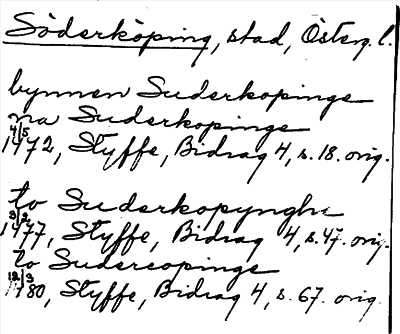 Söderköping, stad, Österg. l.
bynnen Suderkopinge
na Suderkopinge
4/5 1472, Styffe, Bidrag 4, s. 18. orig.
to Suderkopynghe
3/2 1477, Styffe, Bidrag 4, s. 47. orig.
to Sudercopinge
12/3 1480, Styffe, Bidrag 4, s. 67. orig